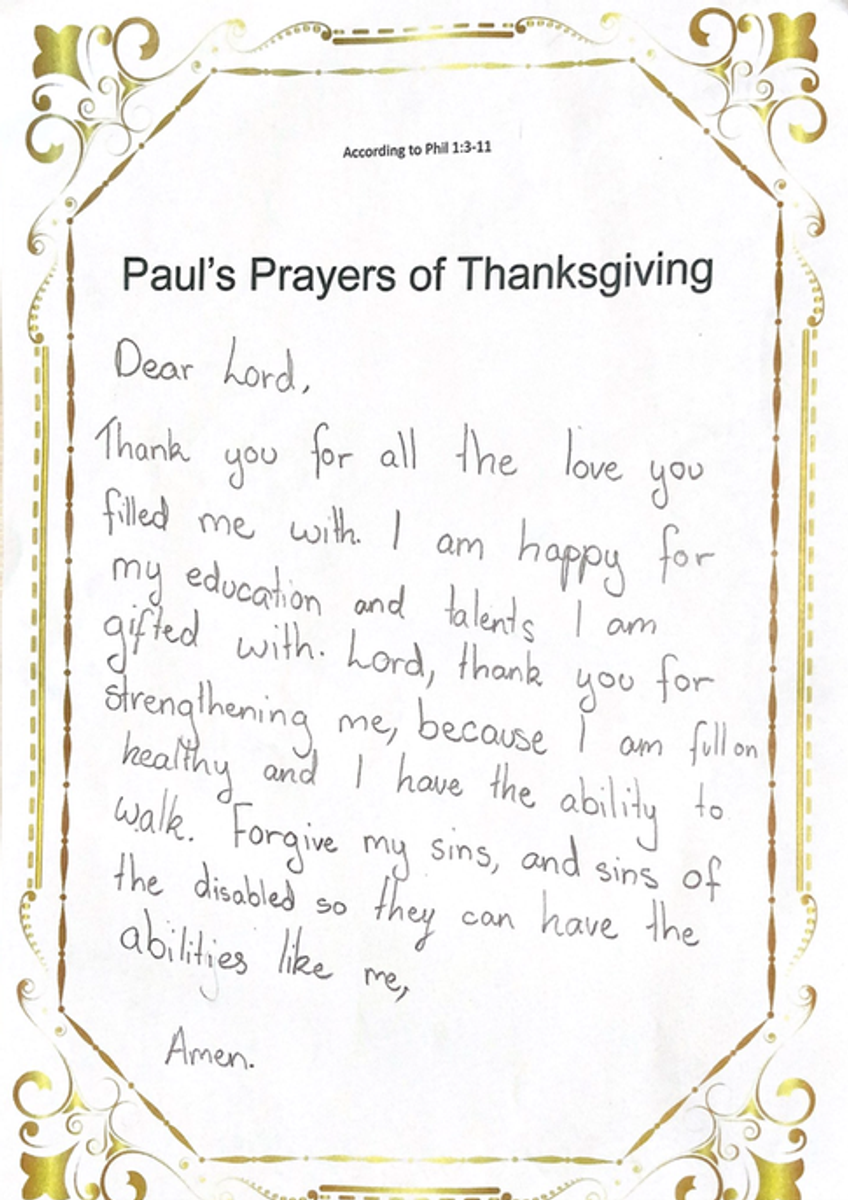 According to Phil 1:3-11
Paul's Prayers of Thanksgiving
Dear Lord,
Thank you for all the love you
filled me with. I am happy for
my education and talents I am
gifted with. Lord, thank you for
strengthening me, because I am full on
healthy and I have the ability to
walk. Forgive my sins, and sins of
the disabled so they can have the
abilities like me,
Amen.